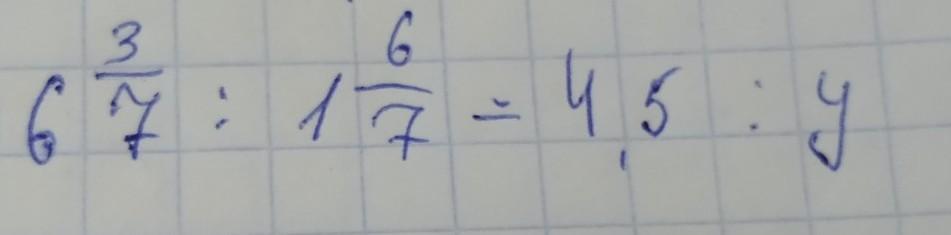 6 3/7 : 1 6/7 = 4,5 : y